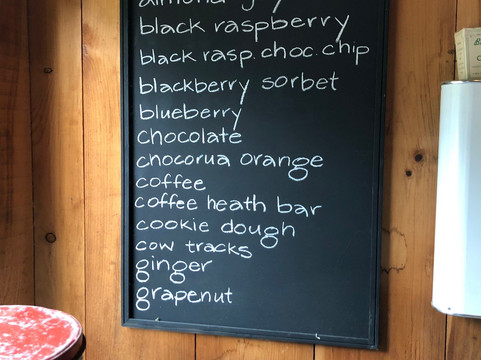 almond joy
black raspberry
black rasp. choc. chip
blackberry sorbet
blueberry
chocolate
chocorua orange
coffee
coffee heath bar
cookie dough
cow tracks
ginger
grapenut